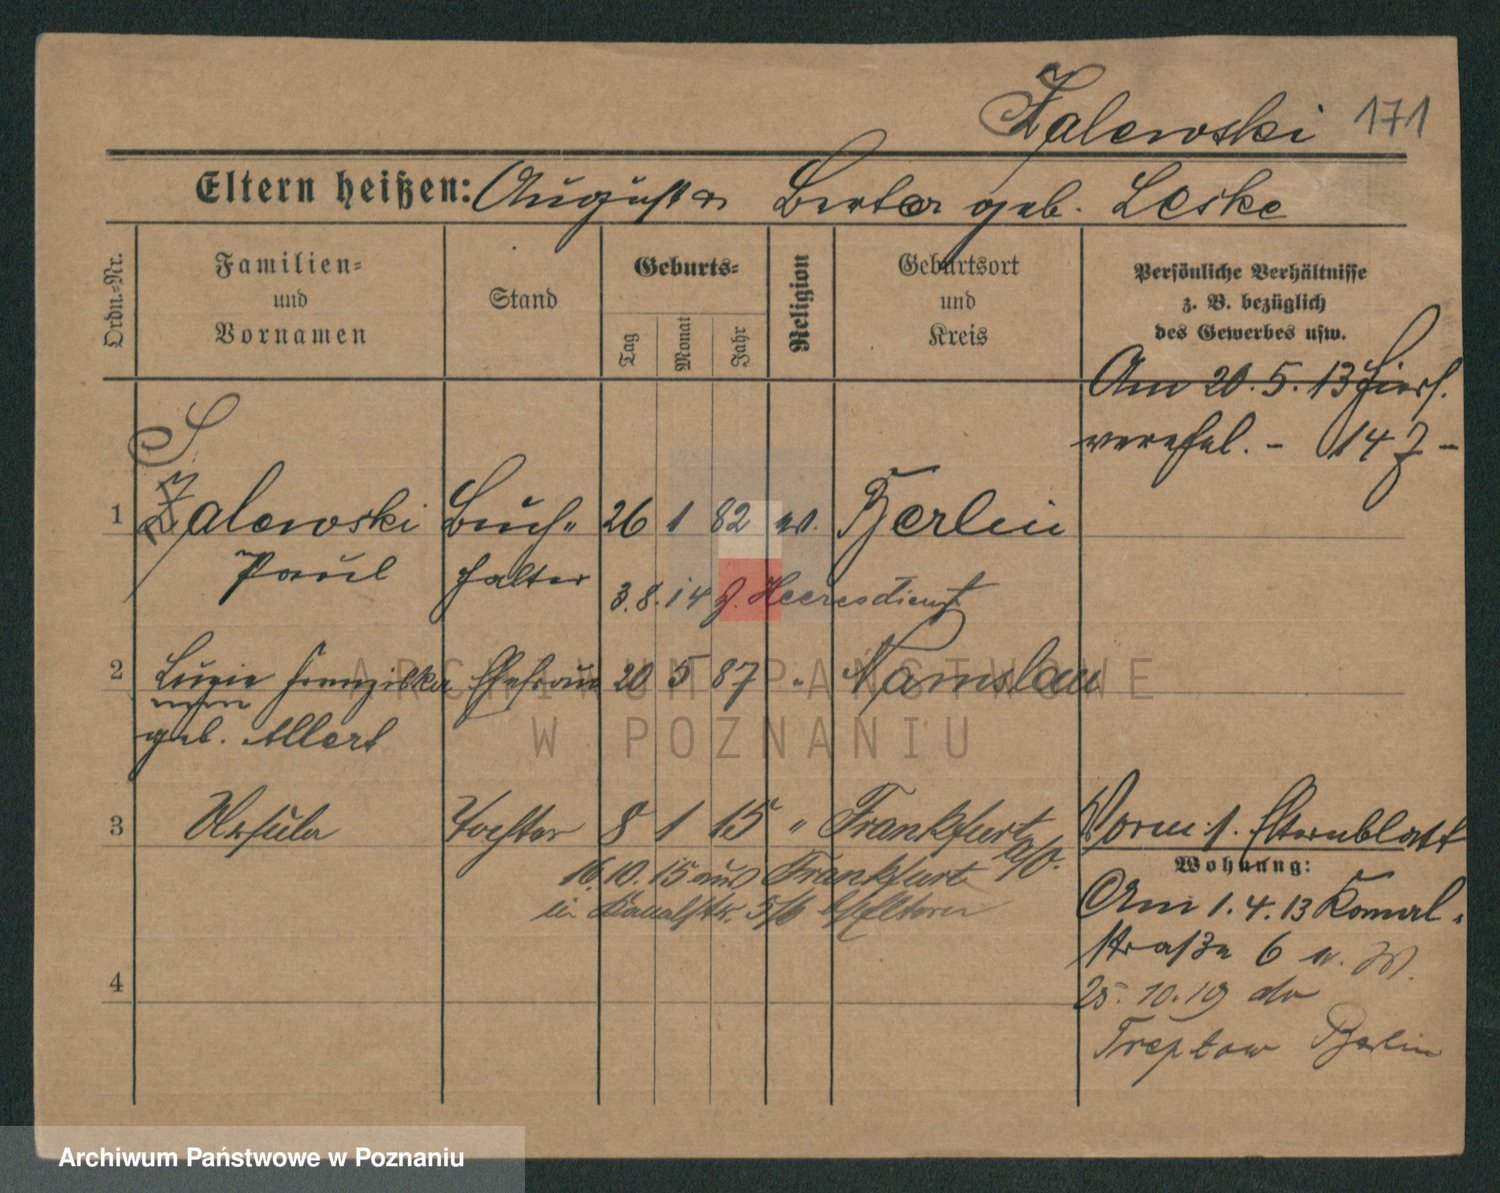 Zalewski 171
Eltern heißen: August u. Berta geb. Leske
Ordn.-Nr.
Familien-
und
Vornamen
Stand
Geburts-
Tag
Monat
Jahr
Religion
Geburtsort
und
Kreis
Persönliche Verhältnisse
z. B. bezüglich
des Gewerbes usw.
Am 20. 5. 13 hiers.
verehel. - 147 -
1 Zalewski Buch- 26 1 82 ev. Berlin
Paul halter
3. 8. 14 z. Heeresdienst
2 Luzie Franziska Ehefrau 20 5 87 " Namslau
geb. Allert
3 Ursula Tochter 8 1 15 " Frankfurt a/O.
Vorm. 1. Elternblatt
16. 10. 15 aus Frankfurt
in Kanalstr. 5/6 b/Eltern
Wohnung:
Am 1. 4. 13 Kanal-
straße 6 n. W.
4
25. 10. 19 do
Treptow Berlin
ARCHIWUM PAŃSTWOWE
W POZNANIU
Archiwum Państwowe w Poznaniu